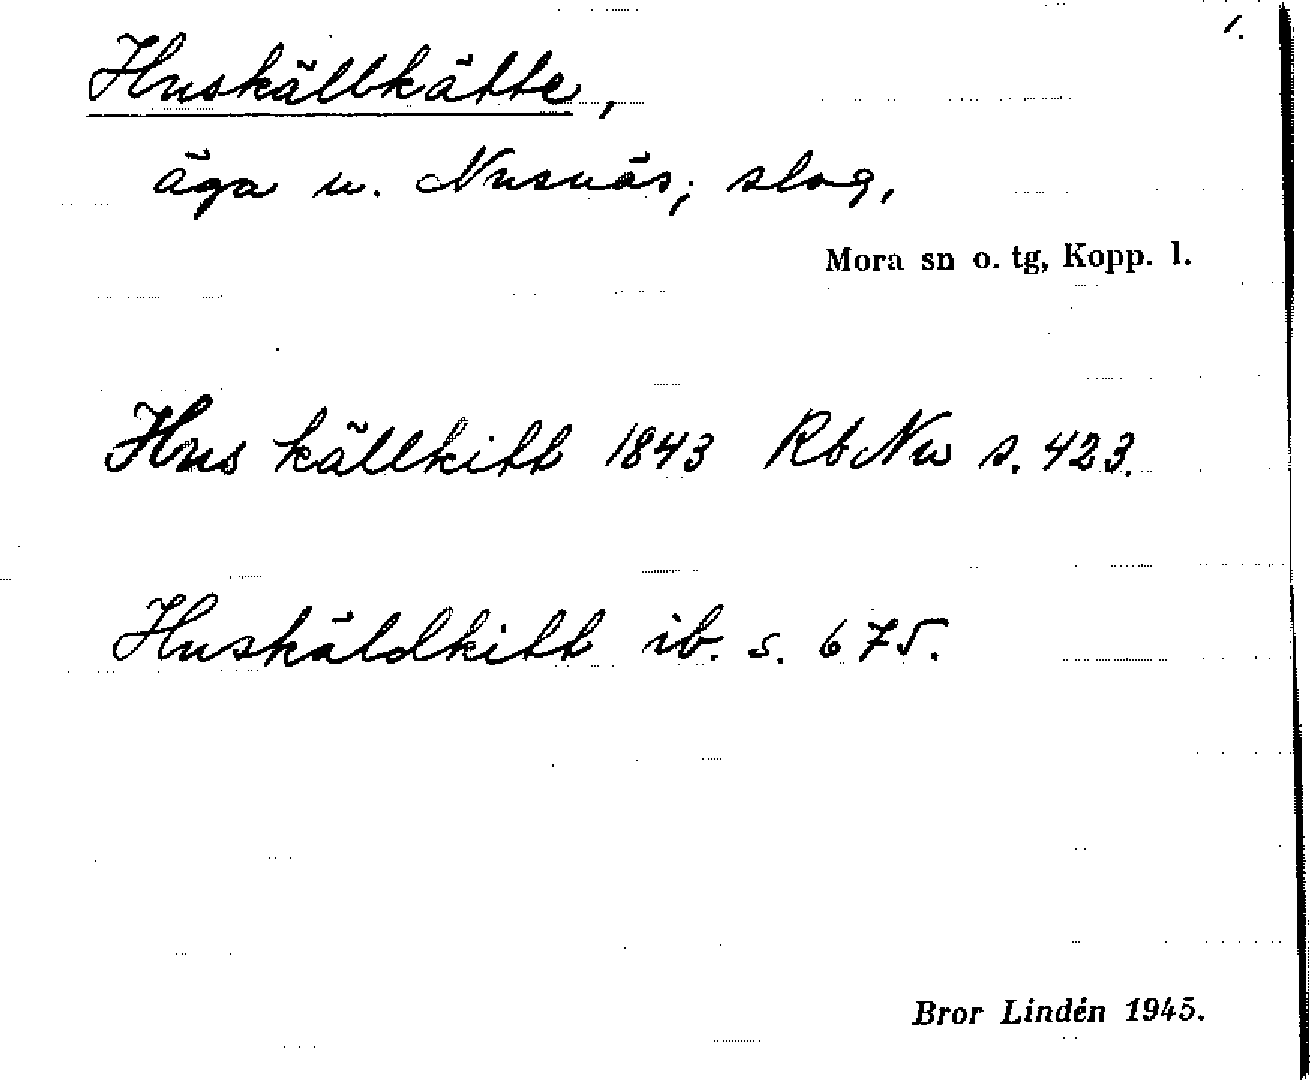 1.
Huskällkätte,
äga u. Nusnäs, slog,
Mora sn o. tg, Kopp. l.
Hus källkitt 1843 RbNu s. 423.
Huskäldkitt ib. s. 675.
Bror Lindén 1945.